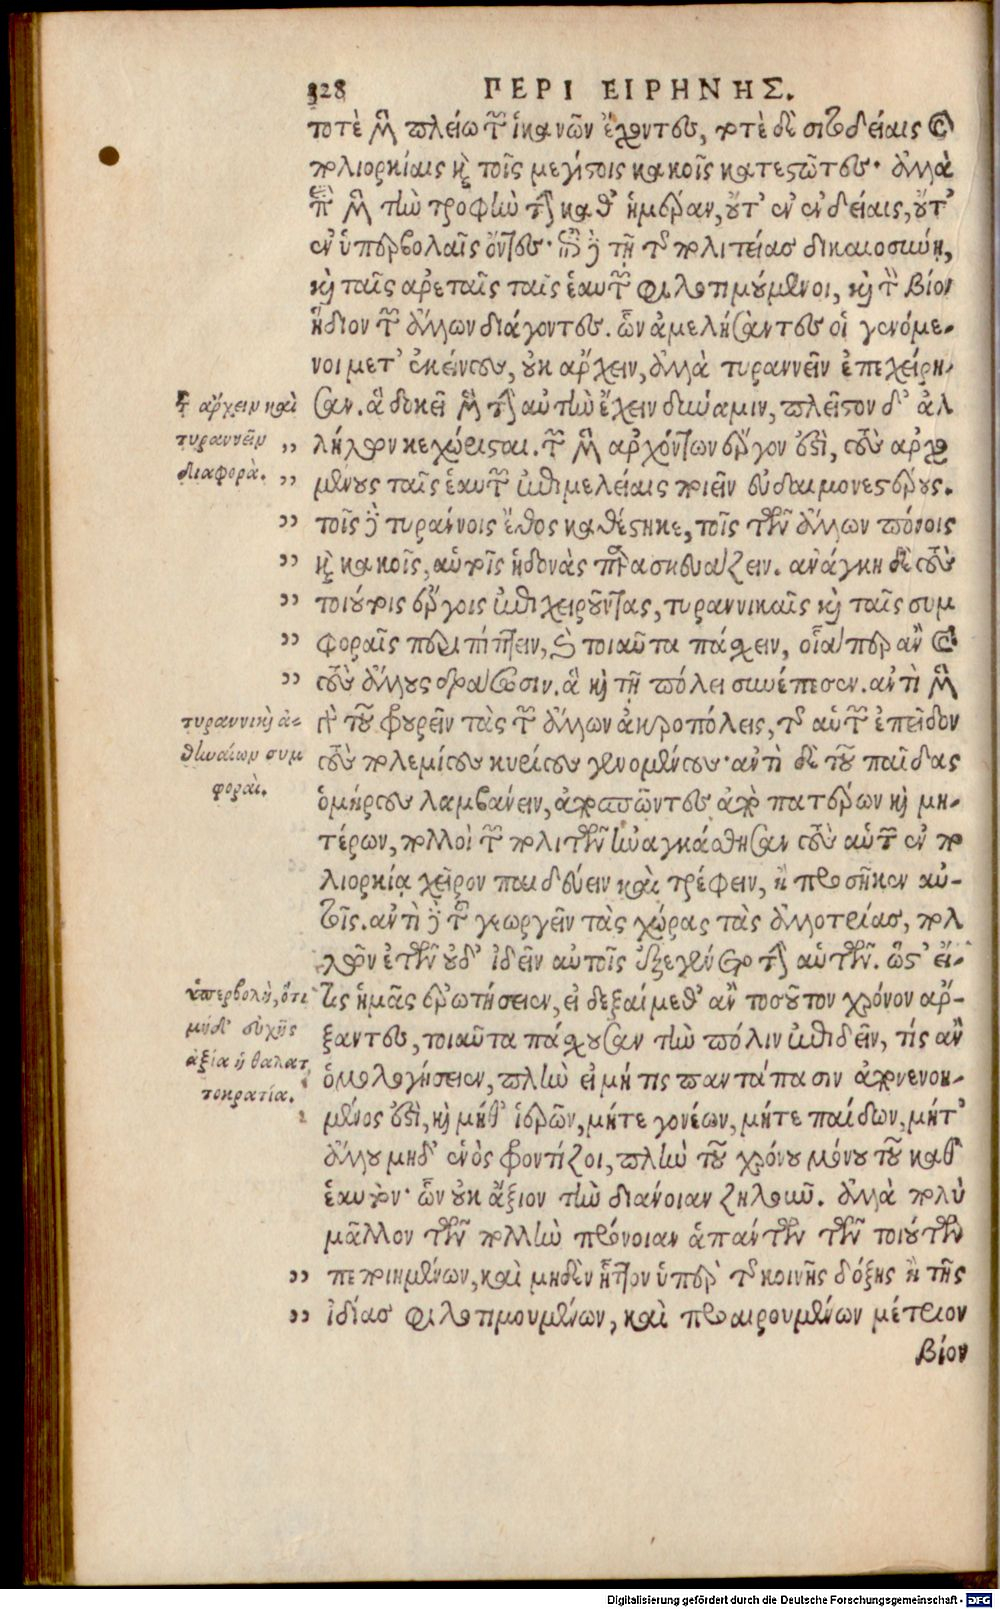 328 ΠΕΡΙ ΕΙΡΗΝΗΣ.
ποτὲ μὲν πλείω τῶν ἱκανῶν ἔχοντες, ποτὲ δὲ σιτοδείαις καὶ
πολιορκίαις καὶ τοῖς μεγίστοις κακοῖς κατεστῶτες· ἀλλὰ
περὶ μὲν τὴν τροφὴν τὴν καθ' ἡμέραν, οὔτ' ἐν ἐνδείαις, οὔτ'
ἐν ὑπερβολαῖς ὄντες· ἐπὶ δὲ τῇ τῆς πολιτείας δικαιοσύνῃ,
καὶ ταῖς ἀρεταῖς ταῖς ἑαυτῶν φιλοτιμούμενοι, καὶ τὸν βίον
ἥδιον τῶν ἄλλων διάγοντες. ὧν ἀμελήσαντες οἱ γενόμε-
νοι μετ' ἐκείνους, οὐκ ἄρχειν, ἀλλὰ τυραννεῖν ἐπεχείρη-
τὸ ἄρχειν καὶ
τυραννεῖν
διαφορά.
σαν. ἃ δοκεῖ μὲν τὴν αὐτὴν ἔχειν δύναμιν, πλεῖστον δ' ἀλ
λήλων κεχώρισται. τῶν μὲν ἀρχόντων ἔργον ἐστὶ, τοὺς ἀρχο
μένους ταῖς ἑαυτῶν ἐπιμελείαις ποιεῖν εὐδαιμονεστέρους.
τοῖς δὲ τυράννοις ἔθος καθέστηκε, τοῖς τῶν ἄλλων πόνοις
καὶ κακοῖς, αὑτοῖς ἡδονὰς παρασκευάζειν. ἀνάγκη δὲ τοὺς
τοιούτοις ἔργοις ἐπιχειροῦντας, τυραννικαῖς καὶ ταῖς συμ
φοραῖς περιπίπτειν, καὶ τοιαῦτα πάσχειν, οἷάπερ ἂν καὶ
τοὺς ἄλλους δράσωσιν. ἃ καὶ τῇ πόλει συνέπεσεν. ἀντὶ μὲν
τυραννικὴ ἀ-
θηναίων συμ
φορά.
γὰρ τοῦ φρουρεῖν τὰς τῶν ἄλλων ἀκροπόλεις, τῆς αὑτῶν ἐπεῖδον
τοὺς πολεμίους κυρίους γενομένους· ἀντὶ δὲ τοῦ παῖδας
ὁμήρους λαμβάνειν, ἀποσπῶντες ἀπὸ πατέρων καὶ μη-
τέρων, πολλοὶ τῶν πολιτῶν ἠναγκάσθησαν τοὺς αὑτῶν ἐν πο
λιορκίᾳ χεῖρον παιδεύειν καὶ τρέφειν, ἢ προσῆκεν αὐ-
τοῖς. ἀντὶ δὲ τοῦ γεωργεῖν τὰς χώρας τὰς ἀλλοτρίας, πολ
λῶν ἐτῶν οὐδ' ἰδεῖν αὐτοῖς ἐξεγένετο τὴν αὑτῶν. ὥστ' εἴ-
ὑπερβολὴ, ὅτι
μηδ' εὐχῆς
ἀξία ἡ θαλατ
τοκρατία.
τις ἡμᾶς ἐρωτήσειεν, εἰ δεξαίμεθ' ἂν τοσοῦτον χρόνον ἄρ-
ξαντες, τοιαῦτα πάσχουσαν τὴν πόλιν ἐπιδεῖν, τίς ἂν
ὁμολογήσειεν, πλὴν εἰ μή τις παντάπασιν ἀπονενοη-
μένος ἐστὶ, καὶ μήθ' ἱερῶν, μήτε γονέων, μήτε παίδων, μήτ'
ἄλλου μηδ' ἑνὸς φροντίζοι, πλὴν τοῦ χρόνου μόνου τοῦ καθ'
ἑαυτόν· ὧν οὐκ ἄξιον τὴν διάνοιαν ζηλοῦν. ἀλλὰ πολὺ
μᾶλλον τῶν πολλὴν πρόνοιαν ἁπάντων τῶν τοιούτων
πεποιημένων, καὶ μηδὲν ἧττον ὑπὲρ τῆς κοινῆς δόξης ἢ τῆς
ἰδίας φιλοτιμουμένων, καὶ προαιρουμένων μέτριον
βίον
Digitalisierung gefördert durch die Deutsche Forschungsgemeinschaft - DFG